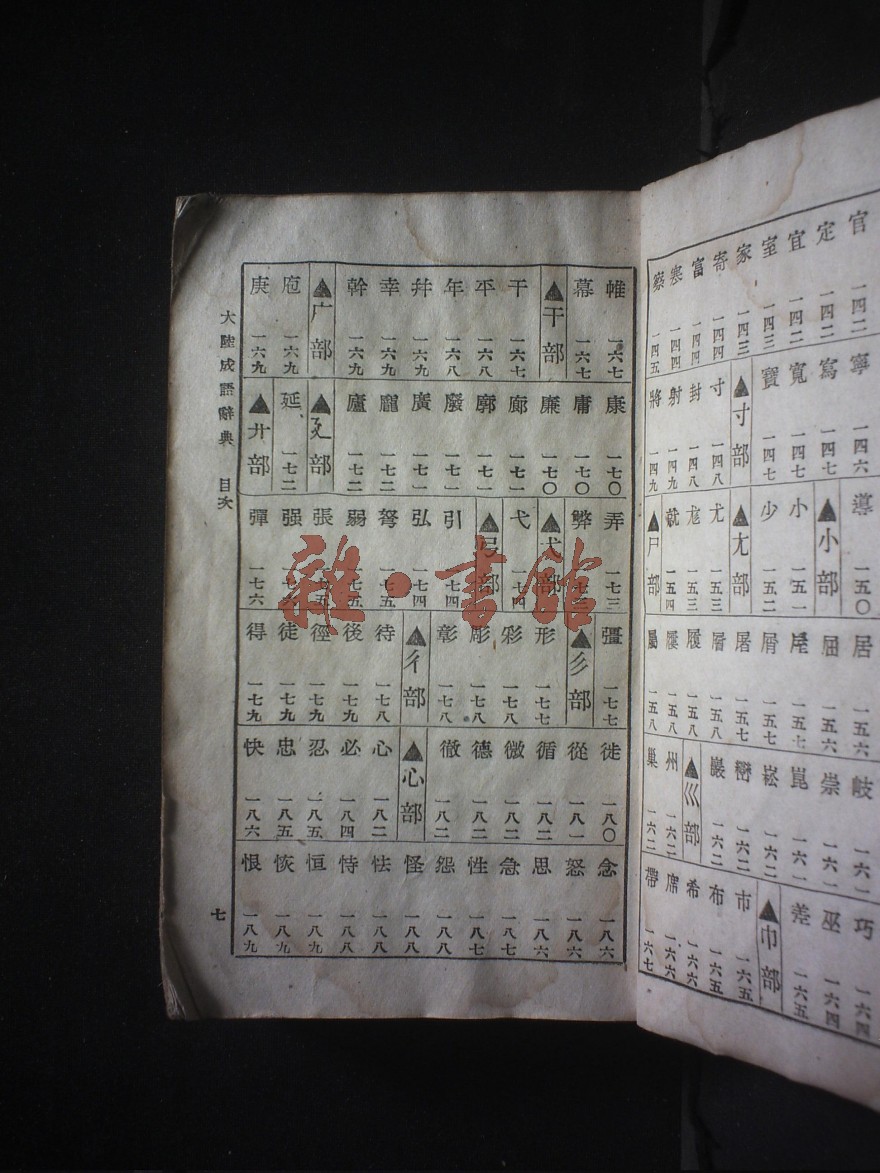 官 一四二
定 一四二
宜 一四二
室 一四三
家 一四三
寄 一四四
富 一四四
寒 一四四
察 一四五
寧 一四六
寫 一四七
寬 一四七
寶 一四七
▲寸部
寸 一四八
封 一四八
射 一四九
將 一四九
導 一五〇
▲小部
小 一五一
少 一五二
▲尢部
尤 一五三
尨 一五三
就 一五四
▲尸部
居 一五六
屈 一五六
屋 一五七
屑 一五七
屠 一五七
層 一五八
履 一五八
屨 一五八
屬 一五八
岐 一六一
崇 一六一
崑 一六一
崧 一六二
巒 一六二
巖 一六二
▲巛部
州 一六二
巢 一六二
巧 一六四
巫 一六四
差 一六五
▲巾部
市 一六五
布 一六五
希 一六六
席 一六六
帶 一六七
帷 一六七
幕 一六七
▲干部
干 一六七
平 一六八
年 一六八
幷 一六九
幸 一六九
幹 一六九
▲广部
庖 一六九
庚 一六九
康 一七〇
庸 一七〇
廉 一七〇
廊 一七一
廓 一七一
廢 一七一
廣 一七一
龐 一七二
廬 一七二
▲廴部
延 一七二
▲廾部
弄 一七三
弊 一七三
▲弋部
弋 一七四
▲弓部
引 一七四
弘 一七四
弩 一七五
弱 一七五
張 一七五
强
彈 一七六
彊 一七七
▲彡部
形 一七七
彩 一七八
彫 一七八
彰 一七八
▲彳部
待 一七八
後 一七九
徑 一七九
徒 一七九
得 一七九
徙 一八〇
從 一八一
循 一八二
微 一八二
德 一八二
徹 一八二
▲心部
心 一八二
必 一八四
忍 一八五
忠 一八五
快 一八六
念 一八六
怒 一八六
思 一八六
急 一八七
性 一八七
怨 一八八
怪 一八八
怯 一八八
恃 一八八
恒 一八九
恢 一八九
恨 一八九
大陸成語辭典 目次
七
雜·書館